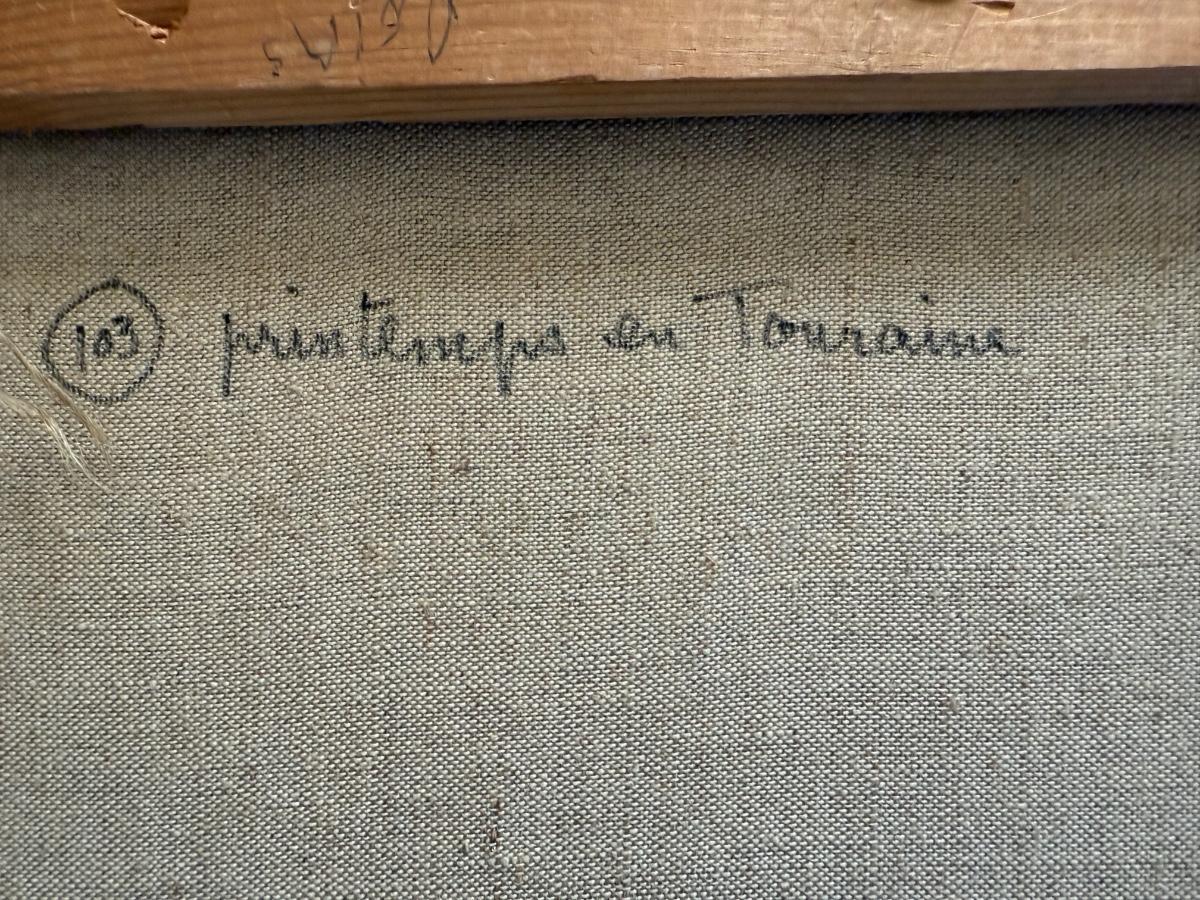 103 printemps en Touraine